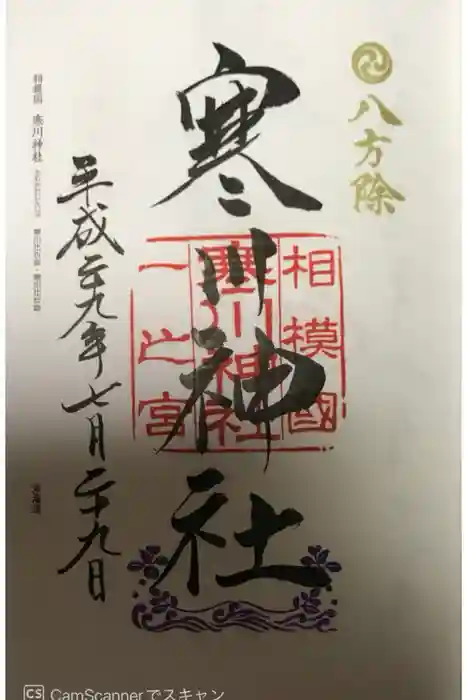 八方除
寒川神社
相模國
寒川神社
一之宮
平成二十九年七月二十九日
相模国 寒川神社
CS CamScannerでスキャン